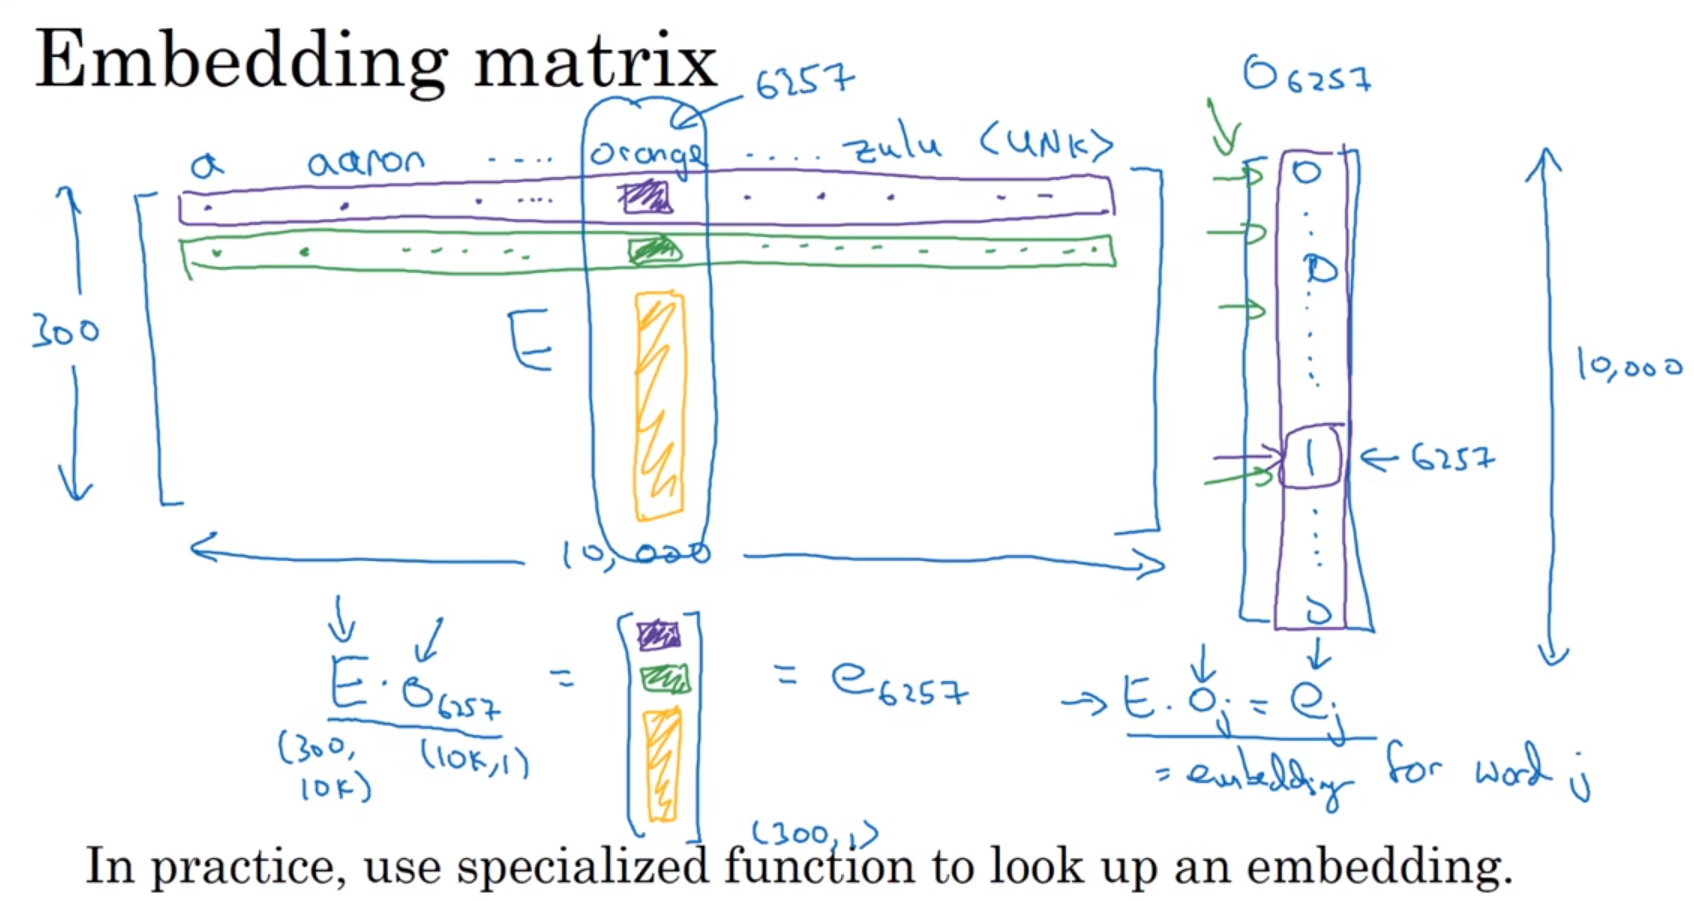 Embedding matrix
6257
O6257
a aaron ..... orange ..... zulu <UNK>
0
0
300
E
10,000
1 ← 6257
10,000
0
E · O6257 = = e6257
(300, 10K) (10K,1)
(300,1)
→ E · Oj = ej
= embedding for word j
In practice, use specialized function to look up an embedding.